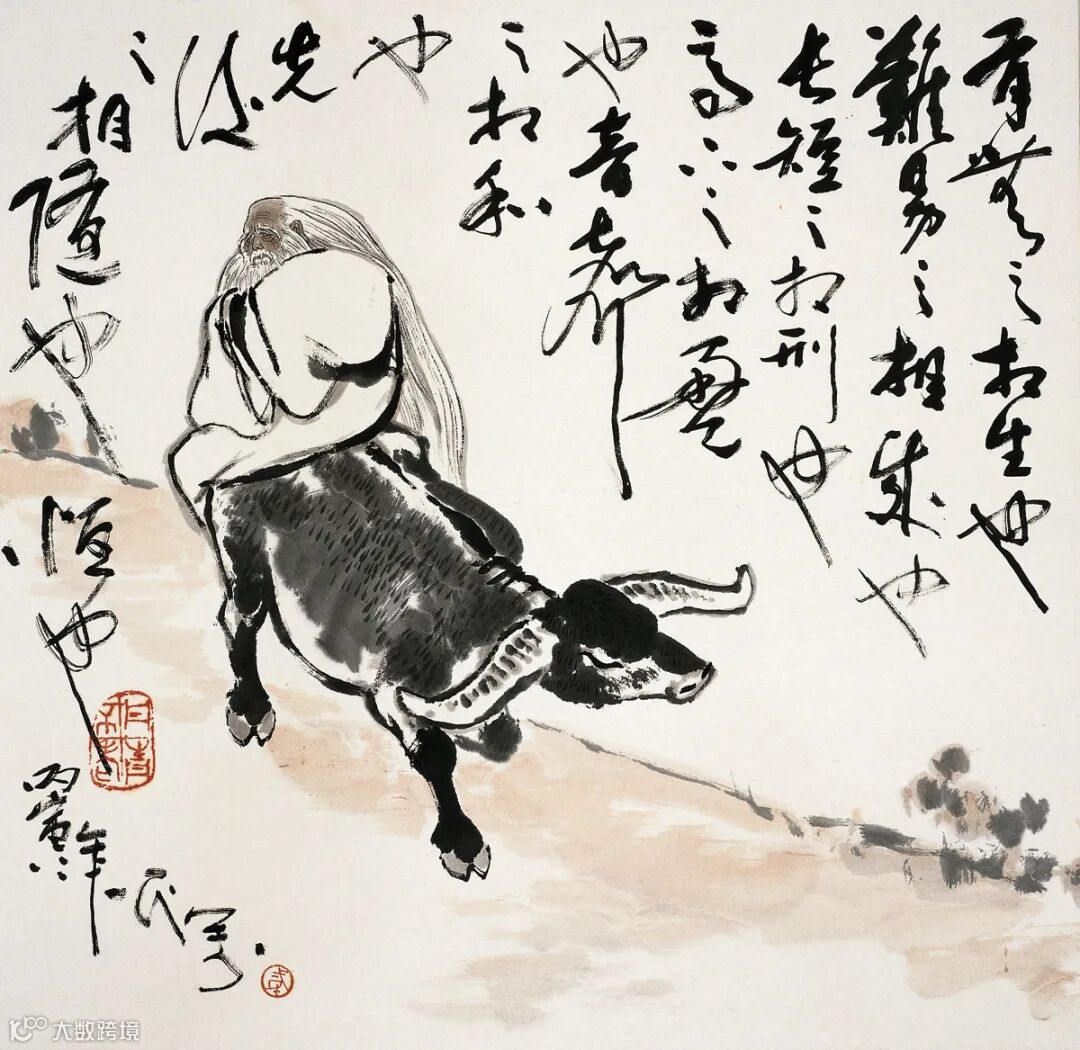 有無之相生也
難易之相成也
長短之相刑也
高下之相盈
也音聲
之相和
也
先
後
之相隨也
恒也
丙寅年
大数跨境